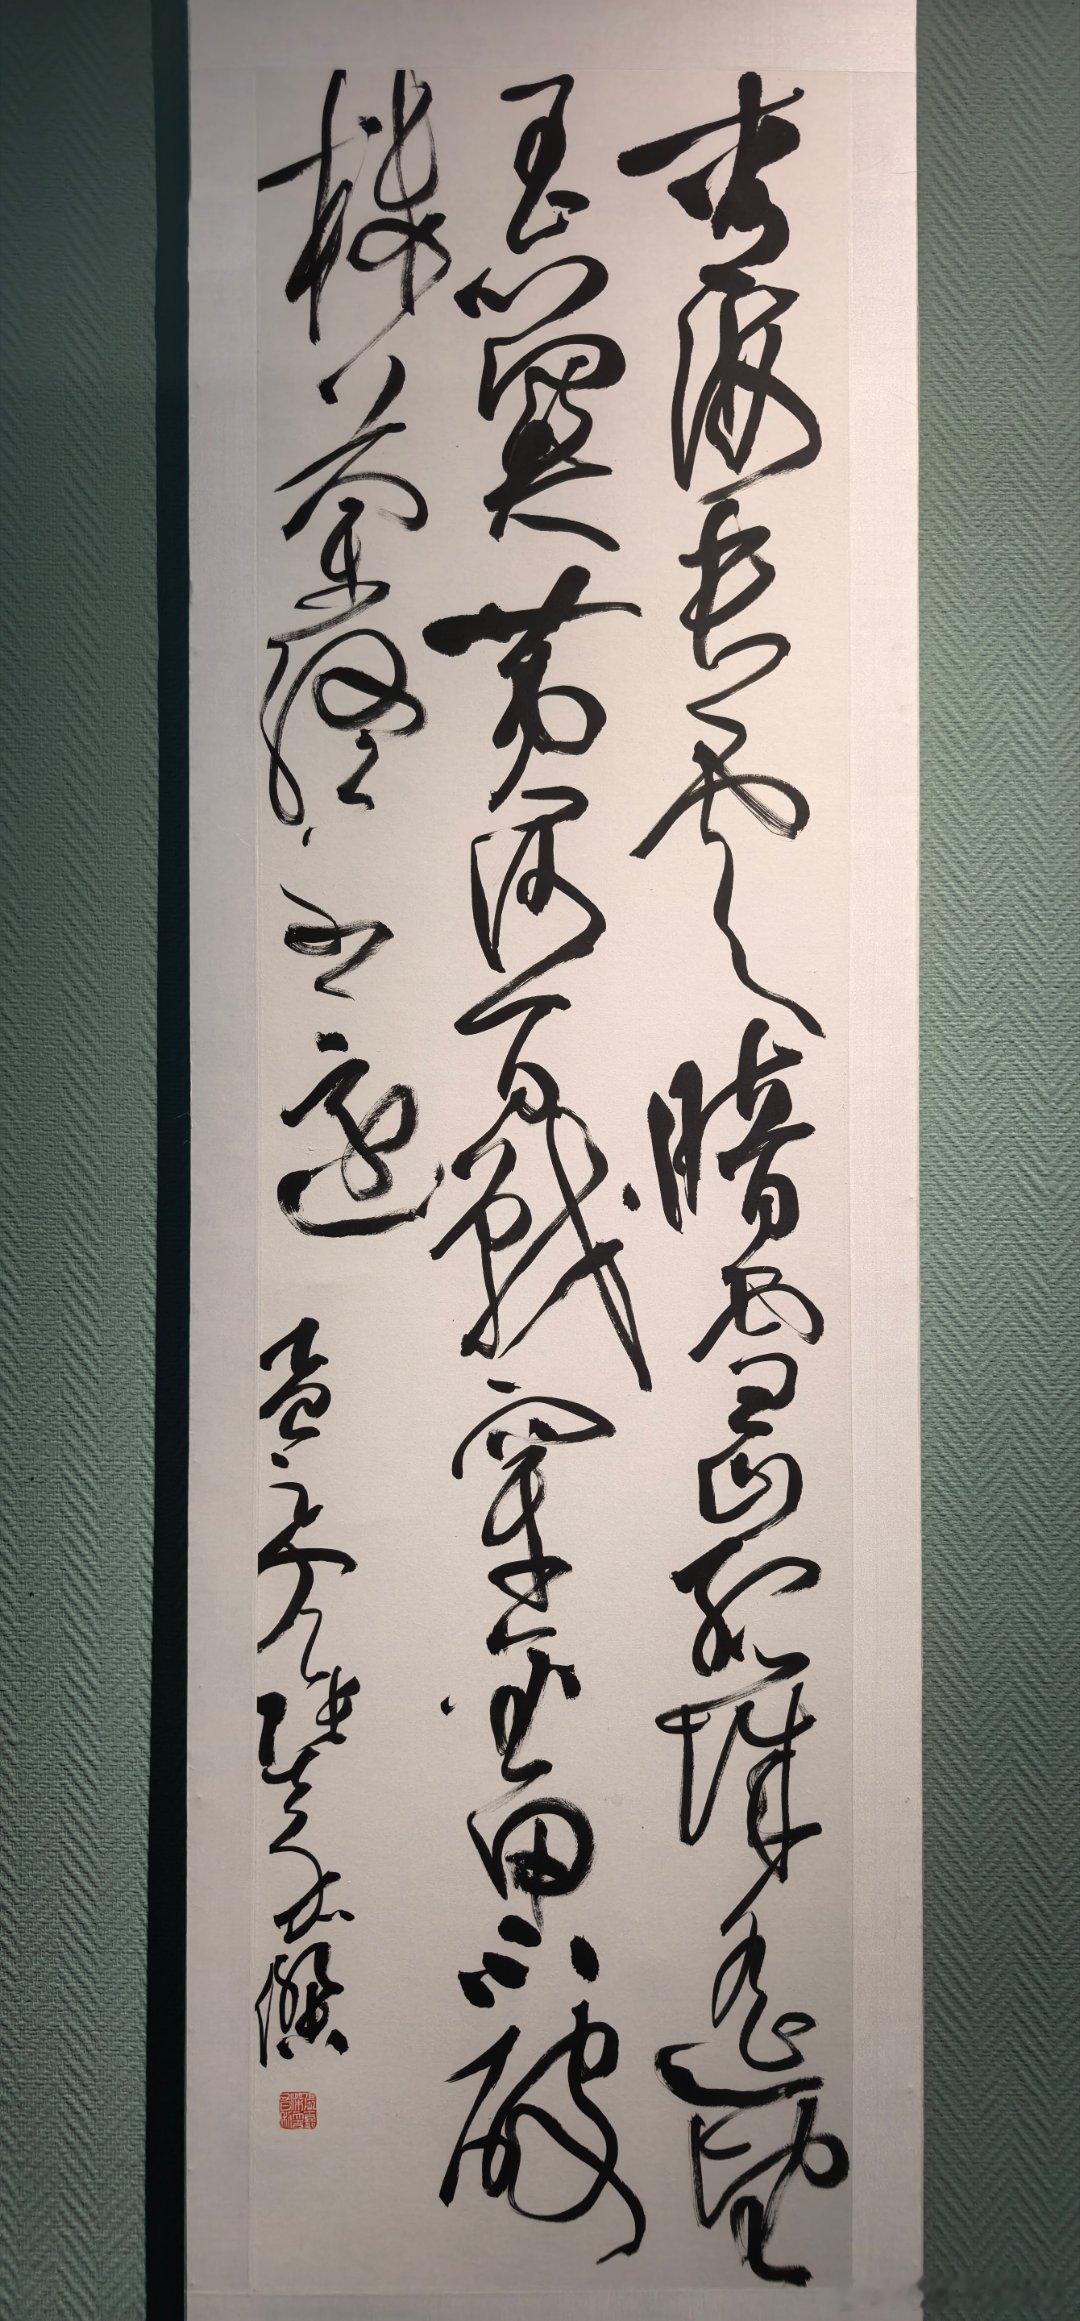 青海長雲暗雪山孤城遙望
玉門關黄沙百戰穿金甲不破
樓蘭終不還